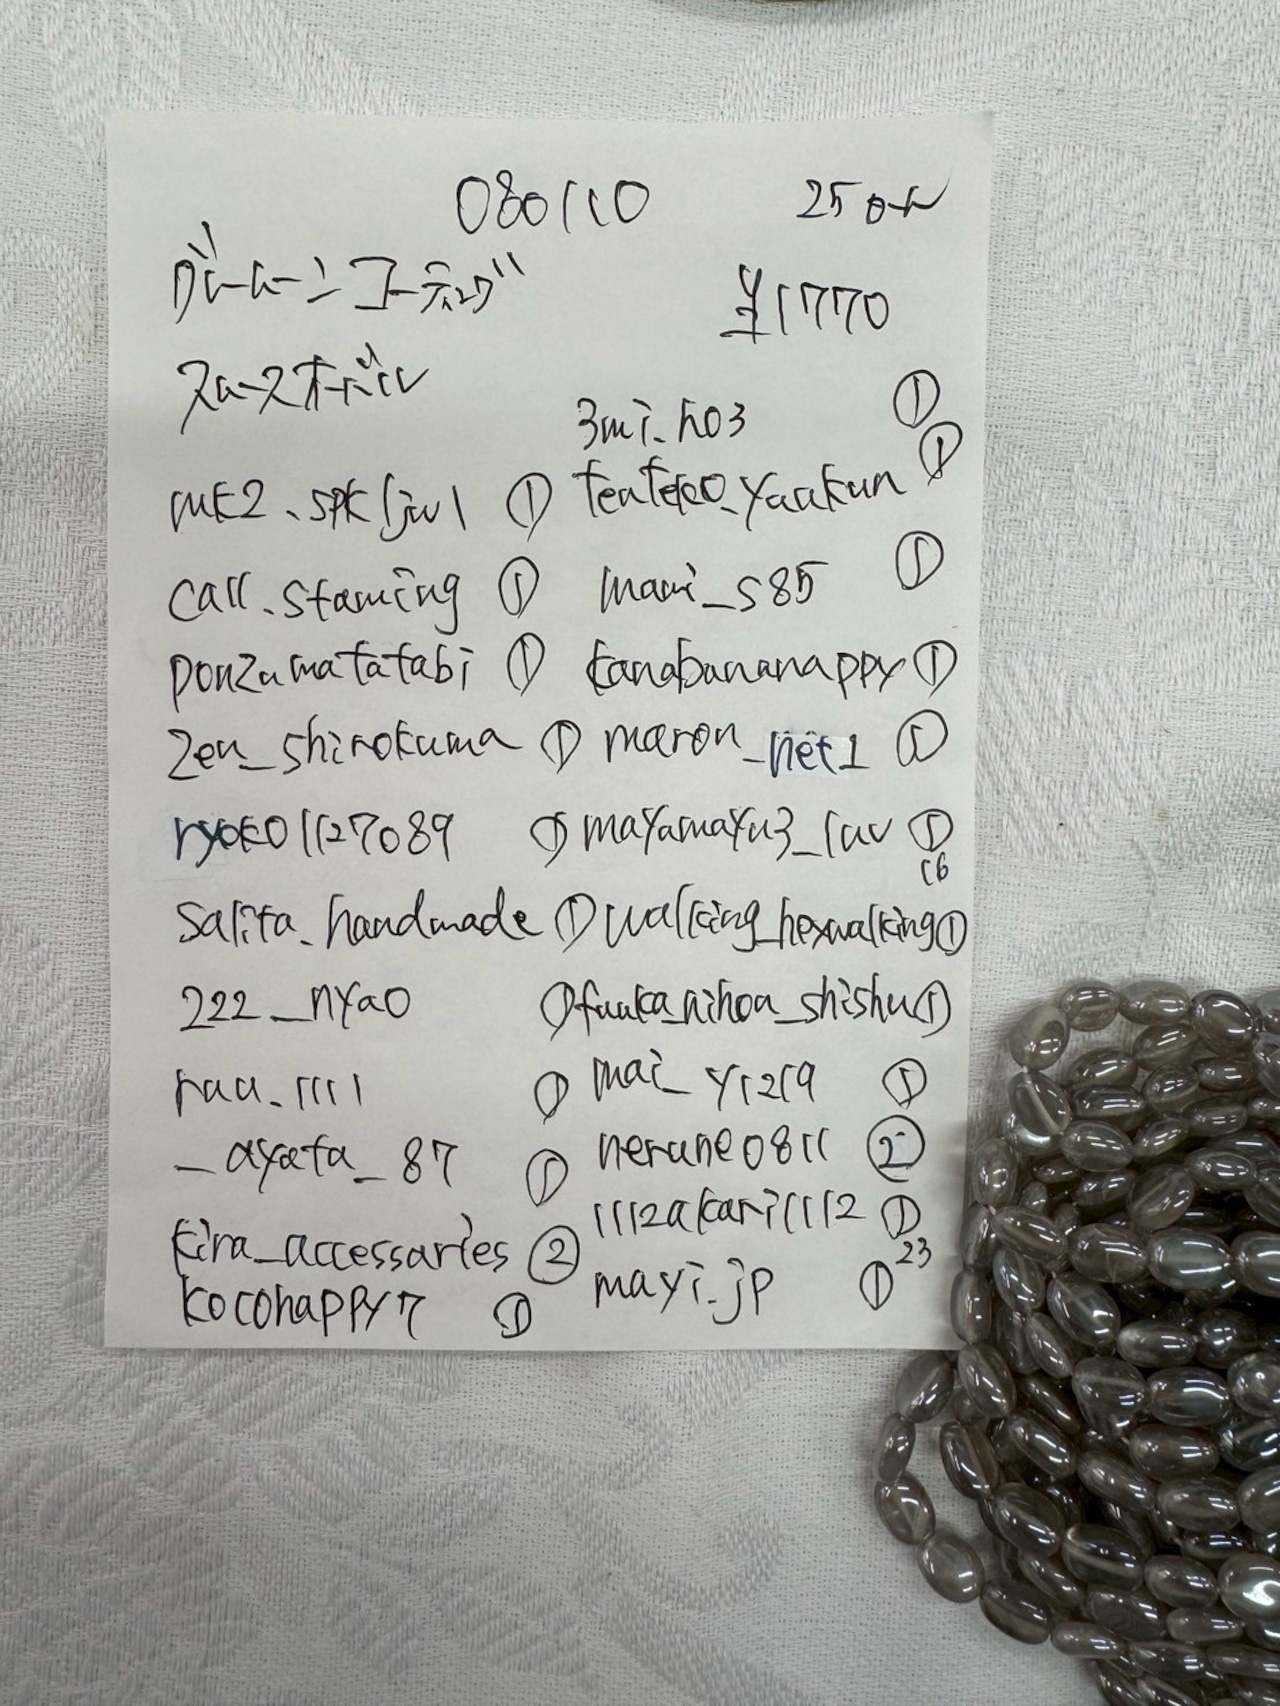 080110 25コール
グレームーンコーティング
¥1770
スムースオーバル
3mi_ho3 ①
mk2.spkljw1 ① teateko_yuukun ①
call.staming ① mami_s85 ①
ponzumatatabi ① kanabananappy ①
zen_shirokuma ① maron_net1 ①
ryoko1127089 ① mayamayu3_luv ①
16
salita_handmade ① walking_hexwalking ①
222_nyao ① fuuka_nihoa_shishu ①
ruu_1111 ① mai_y1219 ①
_ayata_87 ① nerune0811 ②
1112akari1112 ①
kira_accessaries ② 23
kocohappy7 ① mayi.jp ①